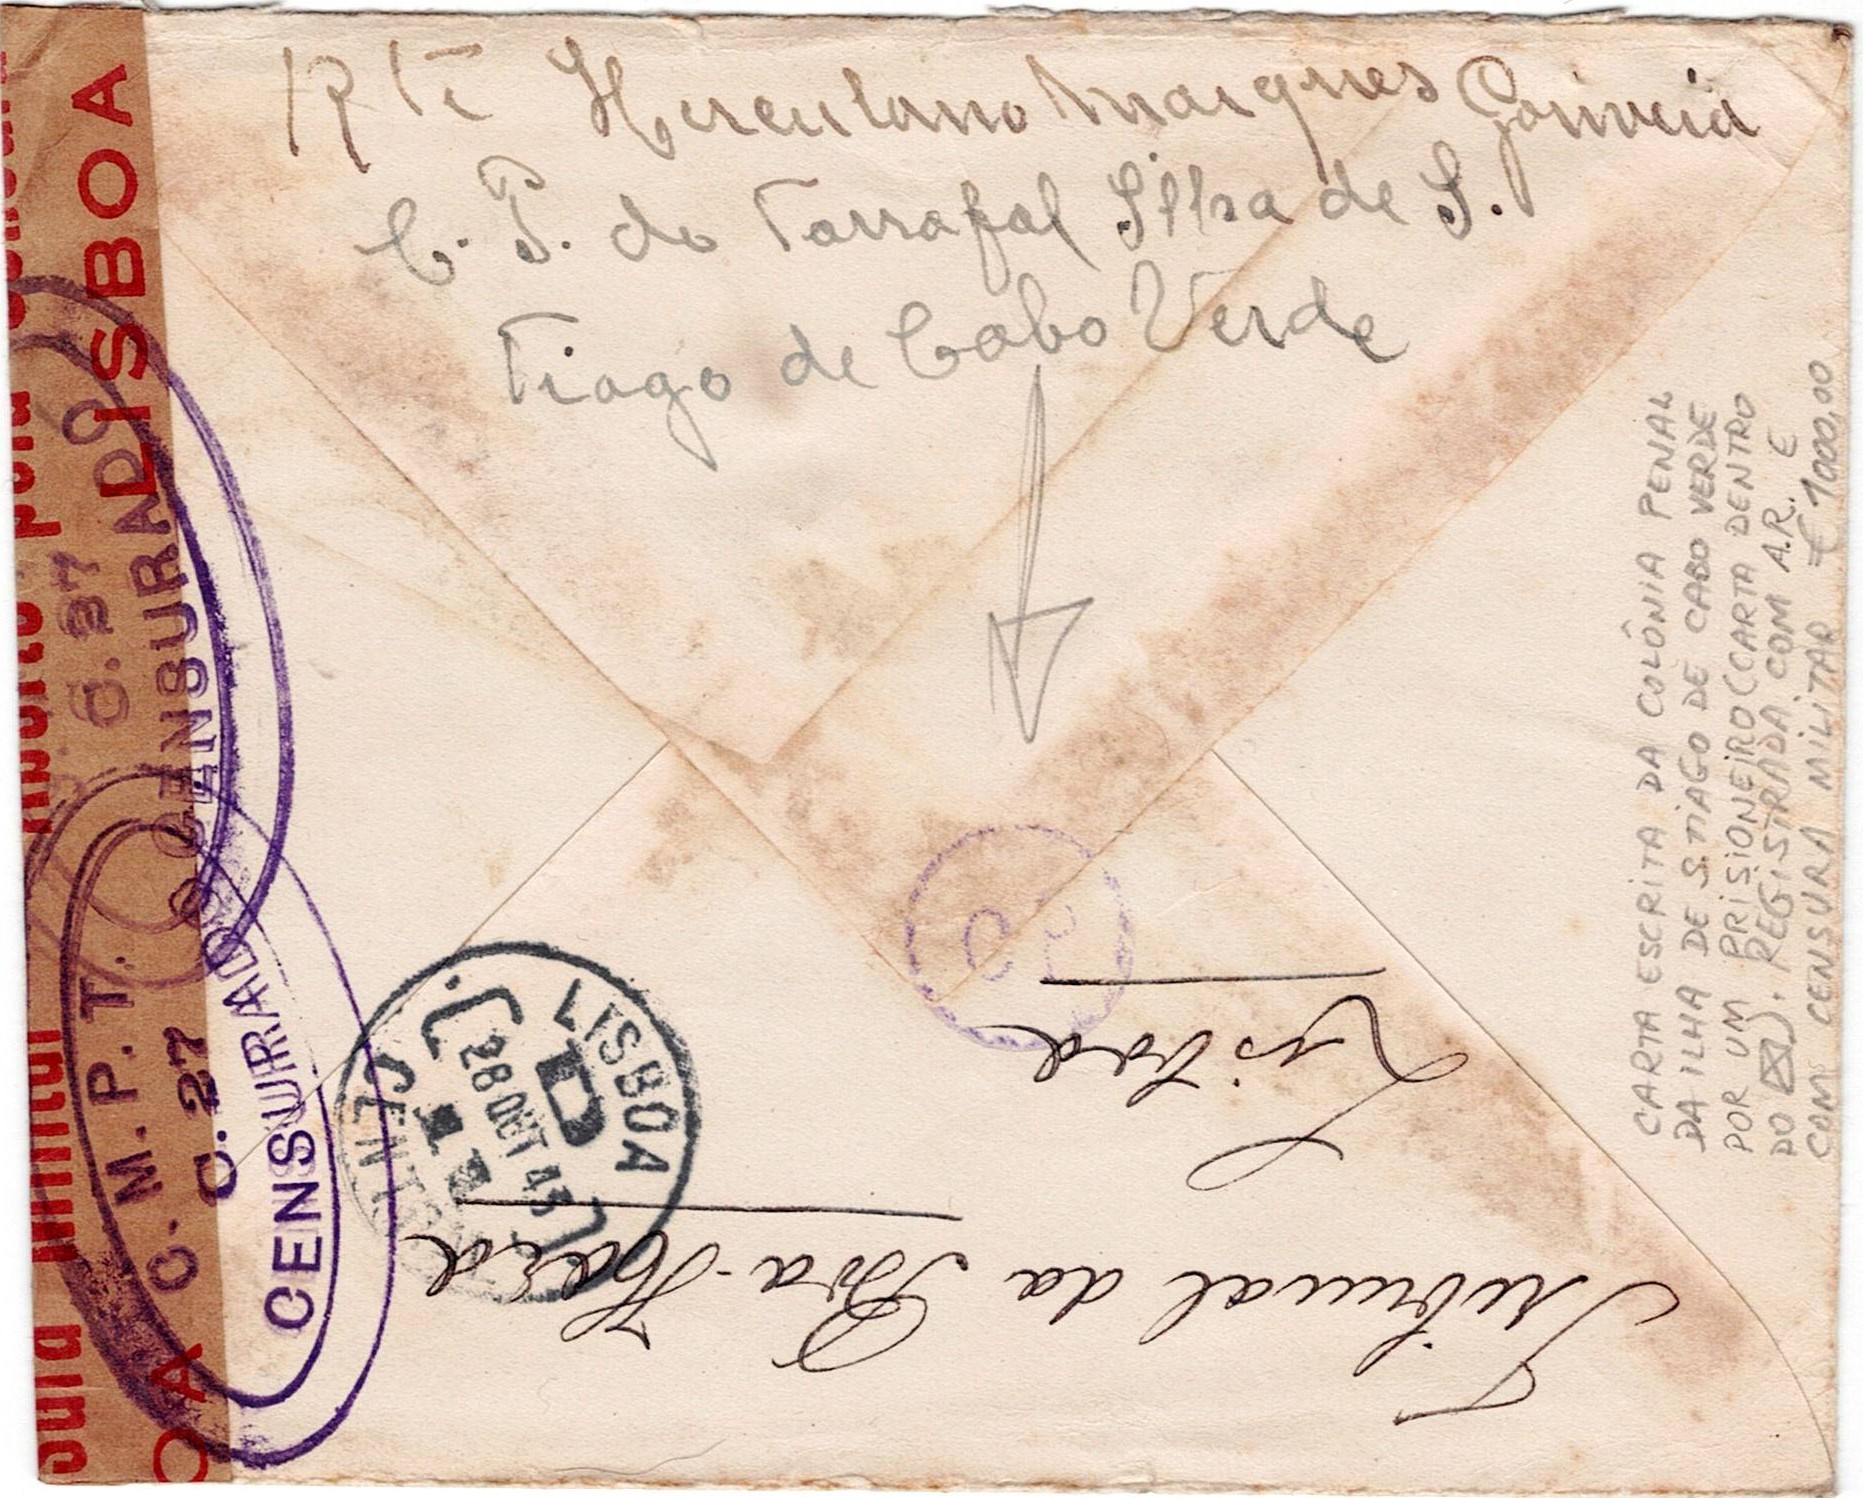 Rte Herculano Marques Gouveia
C. P. do Tarrafal Ilha de S.
Tiago de Cabo Verde
CARTA ESCRITA DA COLÔNIA PENAL
DA ILHA DE S. TIAGO DE CABO VERDE
POR UM PRISIONEIRO (CARTA DENTRO
DO ). REGISTRADA COM A.R. E
COM CENSURA MILITAR € 1000,00
Lisboa
Tribunal da Boa-Hora
LISBOA
CENTRAL
28 OUT 43
LISBOA
Aberto pela censura
militar
CENSURADO
C. 27
C. M. P. T.
C. 27
CENSURADO